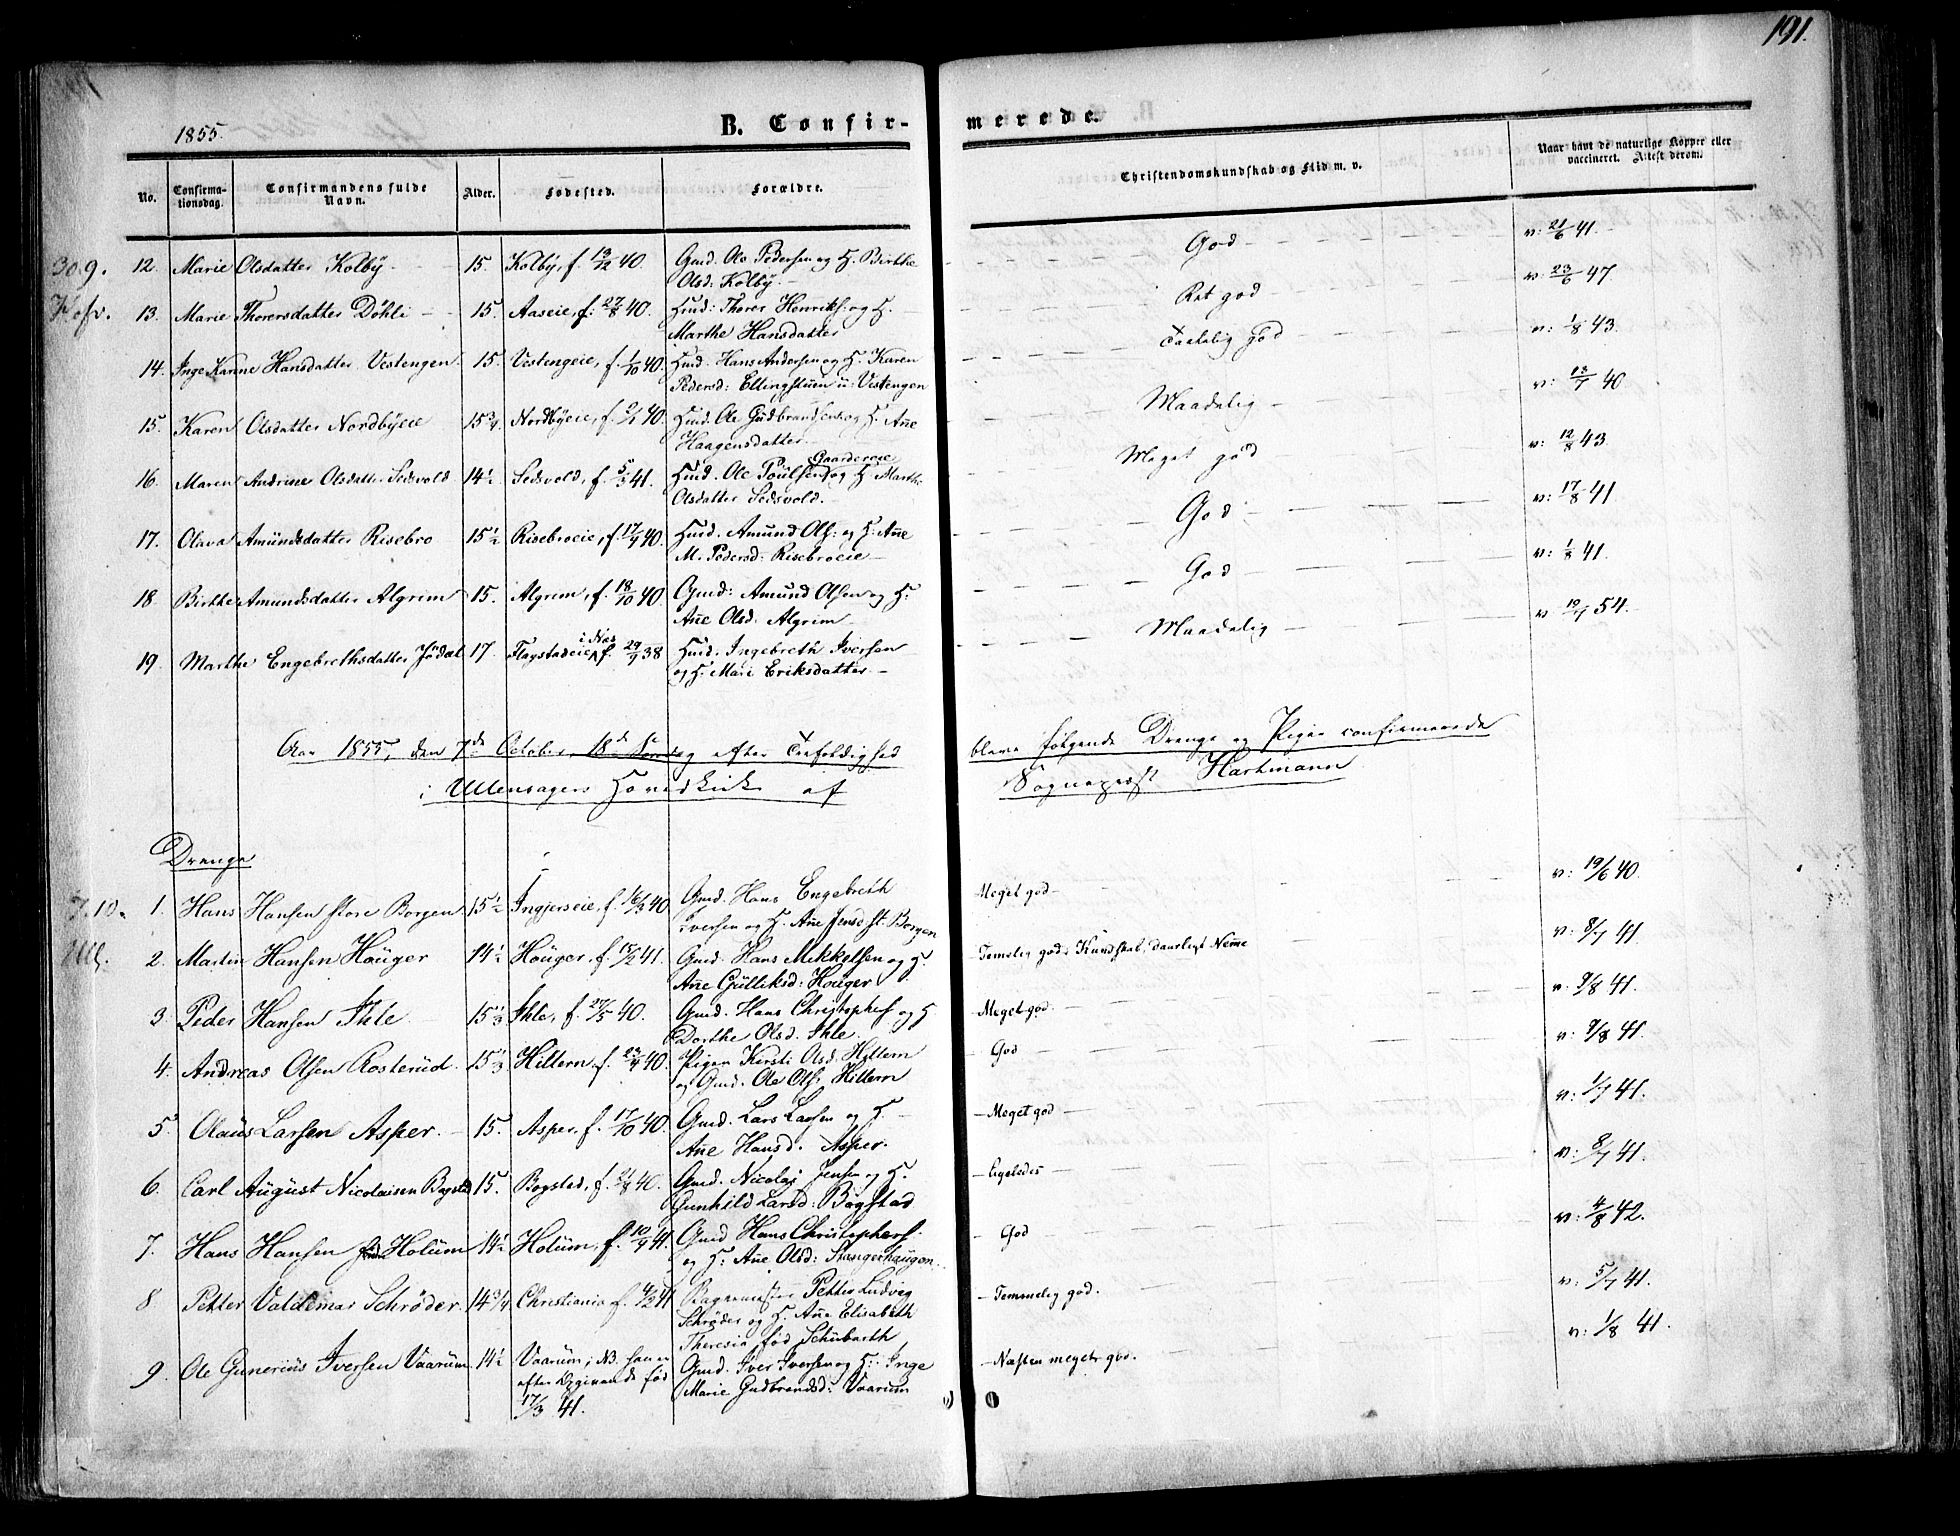 191.
1855.
B. Confir-
merede.
No.
Confirma-
tionsdag.
Confirmandens fulde
Navn.
Alder.
Fødested.
Forældre.
Christendomskundskab og Flid m. v.
Naar havt de naturlige Kopper eller
vaccineret. Attest derom.
30.9.
12. Marie Olsdatter Kolby 15. Kolby, f. 13/12 40. Gmd. Ole Pedersen og H. Birthe
Olsd. Kolby. God v: 21/6 41.
13. Marie Thorersdatter Döhli 15. Aaseie, f: 27/8 40. Huusd: Thorer Henriks: og H.
Marthe Hansdatter Ret god v: 23/6 47.
14. Inge Karine Hansdatter Vestengen 15. Vestengeie, f. 1/10 40. Huusd. Hans Andersen og H. Karen
Pedersd: Ellingstuen u: Vestengen Taalelig god v: 1/8 43.
15. Karen Olsdatter Nordbyeie 15 3/4 Nordbyeie, f. 40. Huusd. Ole Gudbrandsen og H. Ane
Haagensdatter Maadelig v: 13/7 40
16. Maren Andrine Olsdatter Sedsvold 14 1/2 Sedsvold, f. 5/3 41. Huusd. Ole Poulsen og H Marthe
Olsdatter Sedsvold. Meget god v: 12/8 43.
17. Olava Amundsdatter Risebro 15 1/2 Risebroeie, f. 17/4 40. Huusd. Amund Ols: og H: Ane
M. Pedersd: Risebroeie God v: 17/8 41.
18. Birthe Amundsdatter Algrim 15. Algrim, f. 18/10 40 Gmd: Amund Olsen og H:
Ane Olsd. Algrim God v: 1/8 41.
19. Marthe Engebrethsdatter Jödal 17. Flagstadeie i Næs f. 29/9 38 Huusd. Ingebreth Iversen
og H: Mari Eriksdatter. Maadelig v 19/7 54.
Aar 1855, den 7de October, 18de Søndag efter Trefoldighed bleve følgende Drenge og Piger confirmerede
i Ullensagers Hovedkirke af Sognepræst Hartmann
Drenge
7.10.
Ull.
1. Hans Hansen store Borgen 15 1/2 Ingjerseie, f. 16/3 40 Gmd. Hans Engebreth
Iversen og H. Ane Jensd. st. Borgen Meget god v: 19/6 40.
2. Martin Hansen Höuger 14 1/2 Höuger, f. 15/2 41. Gmd. Hans Mikkelsen og H.
Ane Gulliksd: Höuger Temelig gode Kundskab, daarligt Neme v: 8/7 41.
3. Peder Hansen Ihle 15 1/3 Ihle, f. 27/5 40. Gmd. Hans Christophers og H
Dorthe Olsd. Ihle Meget god v: 9/8 41.
4. Andreas Olsen Rosterud. 15 1/3 Hiltern, f. 40. Pigen Kirsti Olsd. Hiltern
og Gmd. Ole Ols: Hiltern God v: 9/8 41.
5. Olaus Larsen Asper. 15. Asper, f. 17/10 40. Gmd. Lars Larsen og H.
Ane Hansd. Asper. Meget god v: 1/7 41.
6. Carl August Nicolaisen Bogstad 15. Bogstad, f. 40. Gmd. Nicolaj Jensen og H.
Gunhild Larsd: Bogstad Ligeledes v: 8/7 41.
7. Hans Hansen Holum 14 1/2 Holum, f. 10/9 41. Gmd Hans Christophers.
og H: Ane Olsd: Stangerhaugen. God v: 4/8 42.
8. Petter Valdemar Schrøder. 14 3/4 Christiania f. 41 Bagermester Petter Ludvig
Schrøder og H. Ane Elisabeth
Theresia, fød Schubarth Temmelig god. v: 5/7 41.
9. Ole Gunerius Iversen Vaarum 14 1/2 Vaarum; NB. han er
efter Opgivende fød
17/3 41. Gmd. Iver Iversen og H: Inge
Marie Gudbrandsd: Vaarum Næsten meget god. v: 1/8 41.